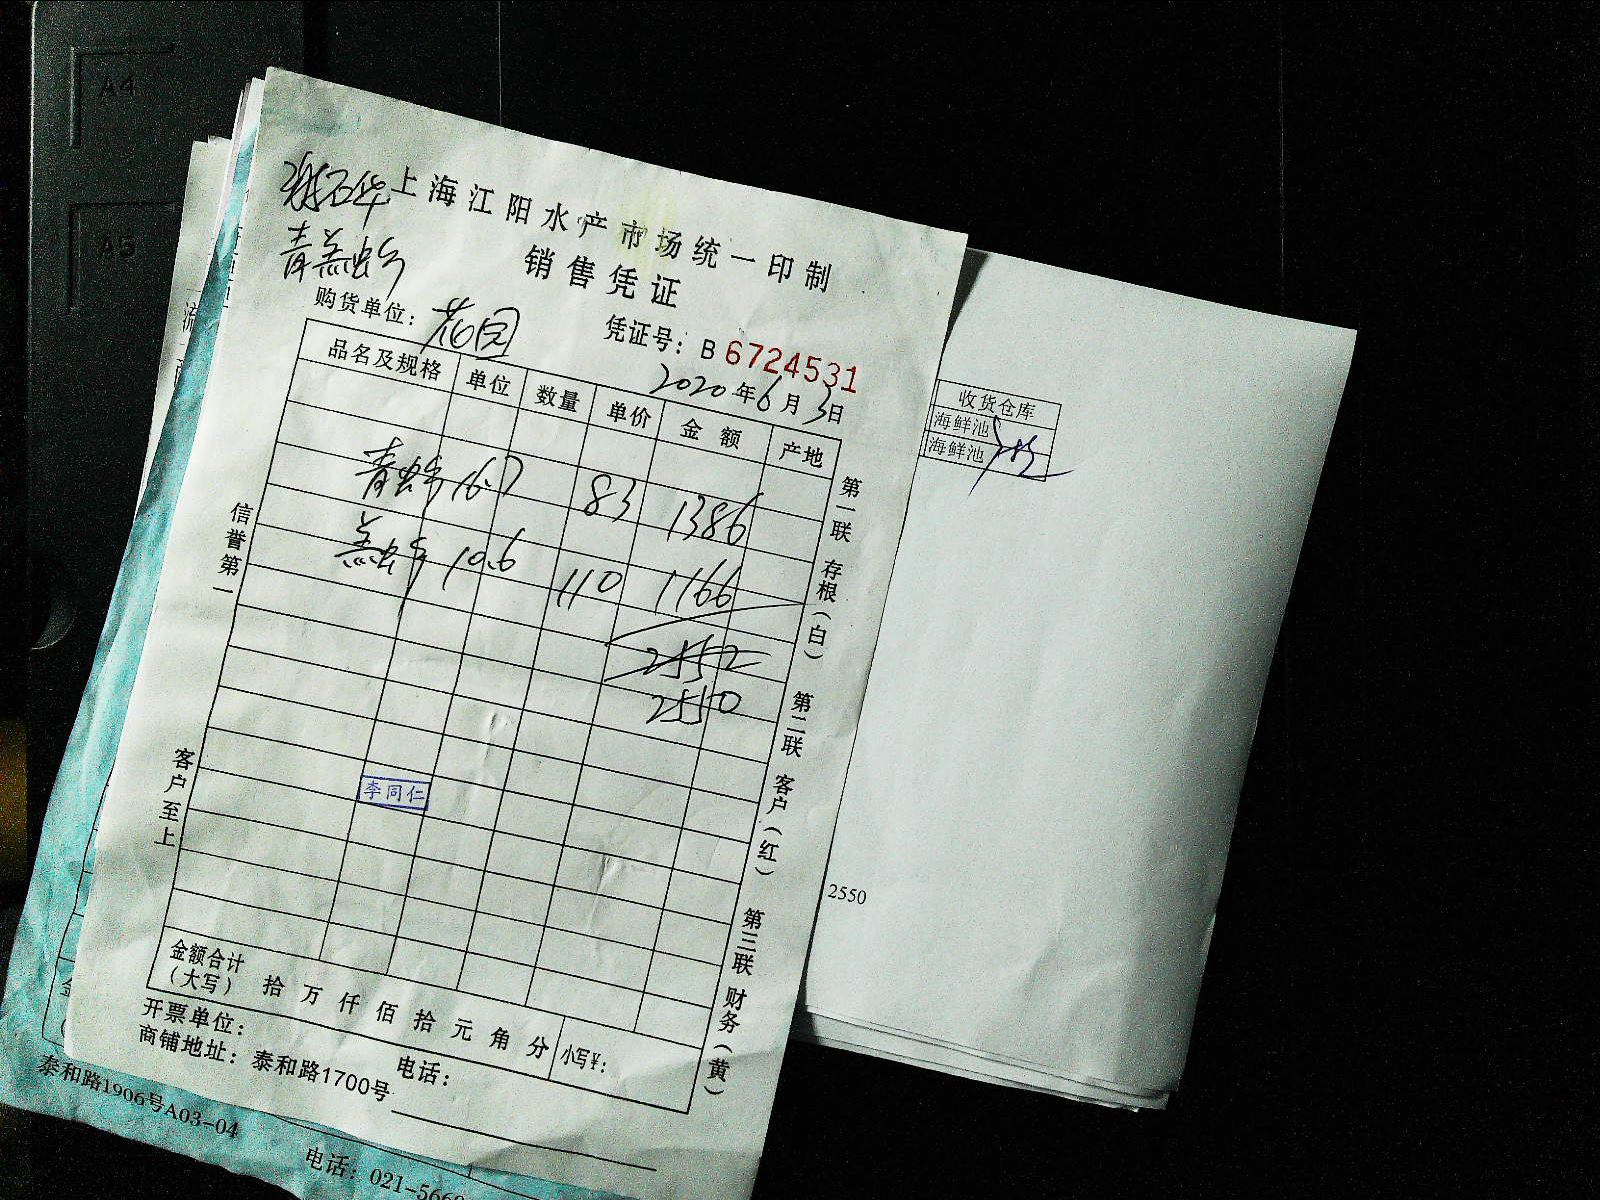 A4
A5
上海江阳水产市场统一印制
青羔虾
销售凭证
购货单位：花园
凭证号：B 6724531
2020年6月3日
品名及规格 单位 数量 单价 金额 产地
青虾 16.7 83 1386
羔虾 10.6 110 1166
2552
2550
李同仁
金额合计（大写） 拾 万 仟 佰 拾 元 角 分 小写¥：
开票单位： 电话：
商铺地址：泰和路1700号
信誉第一
客户至上
第一联 存根（白） 第二联 客户（红） 第三联 财务（黄）
收货仓库
海鲜池
海鲜池
2550
泰和路1906号A03-04
电话：021-566